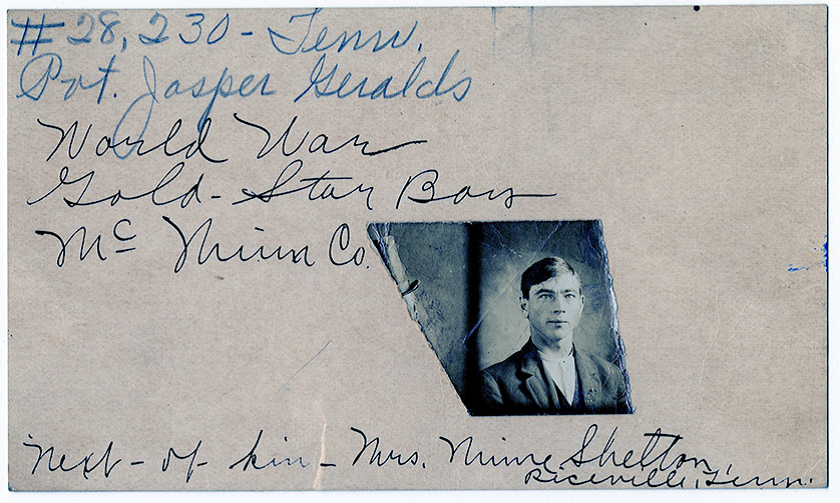 #28,230 - Tenn.
Pvt. Jasper Geralds
World War
Gold - Star Boys
Mc Minn Co.
Next - of - kin - Mrs. Shelton,
Riceville, Tenn.